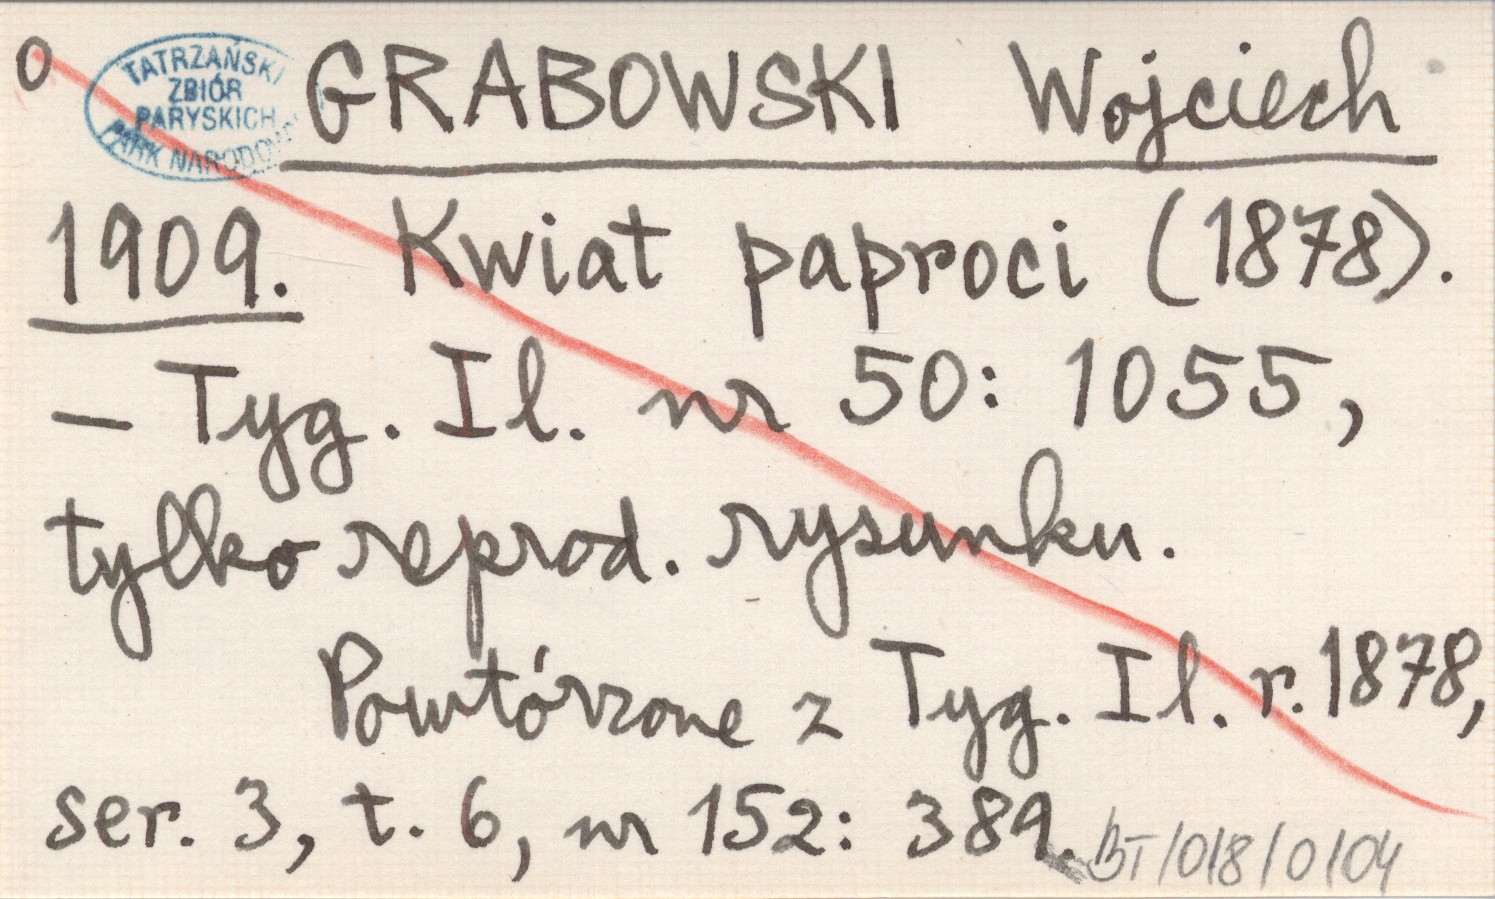 0
TATRZAŃSKI
ZBIÓR
PARYSKICH
PARK NARODOWY
GRABOWSKI Wojciech
1909. Kwiat paproci (1878).
— Tyg. Il. nr 50: 1055,
tylko reprod. rysunku.
Powtórzone z Tyg. Il. r. 1878,
ser. 3, t. 6, nr 152: 389.
BT/018/0/04